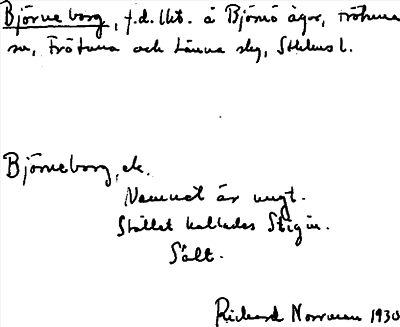 Björneborg, f.d. lht. å Björnö ägor, Frötuna
sn, Frötuna och Länna slg, Sthlms l.
Björneborg, ek.
Namnet är ungt.
Stället kallades Stigin.
Sålt.
Richard Norrman 1930